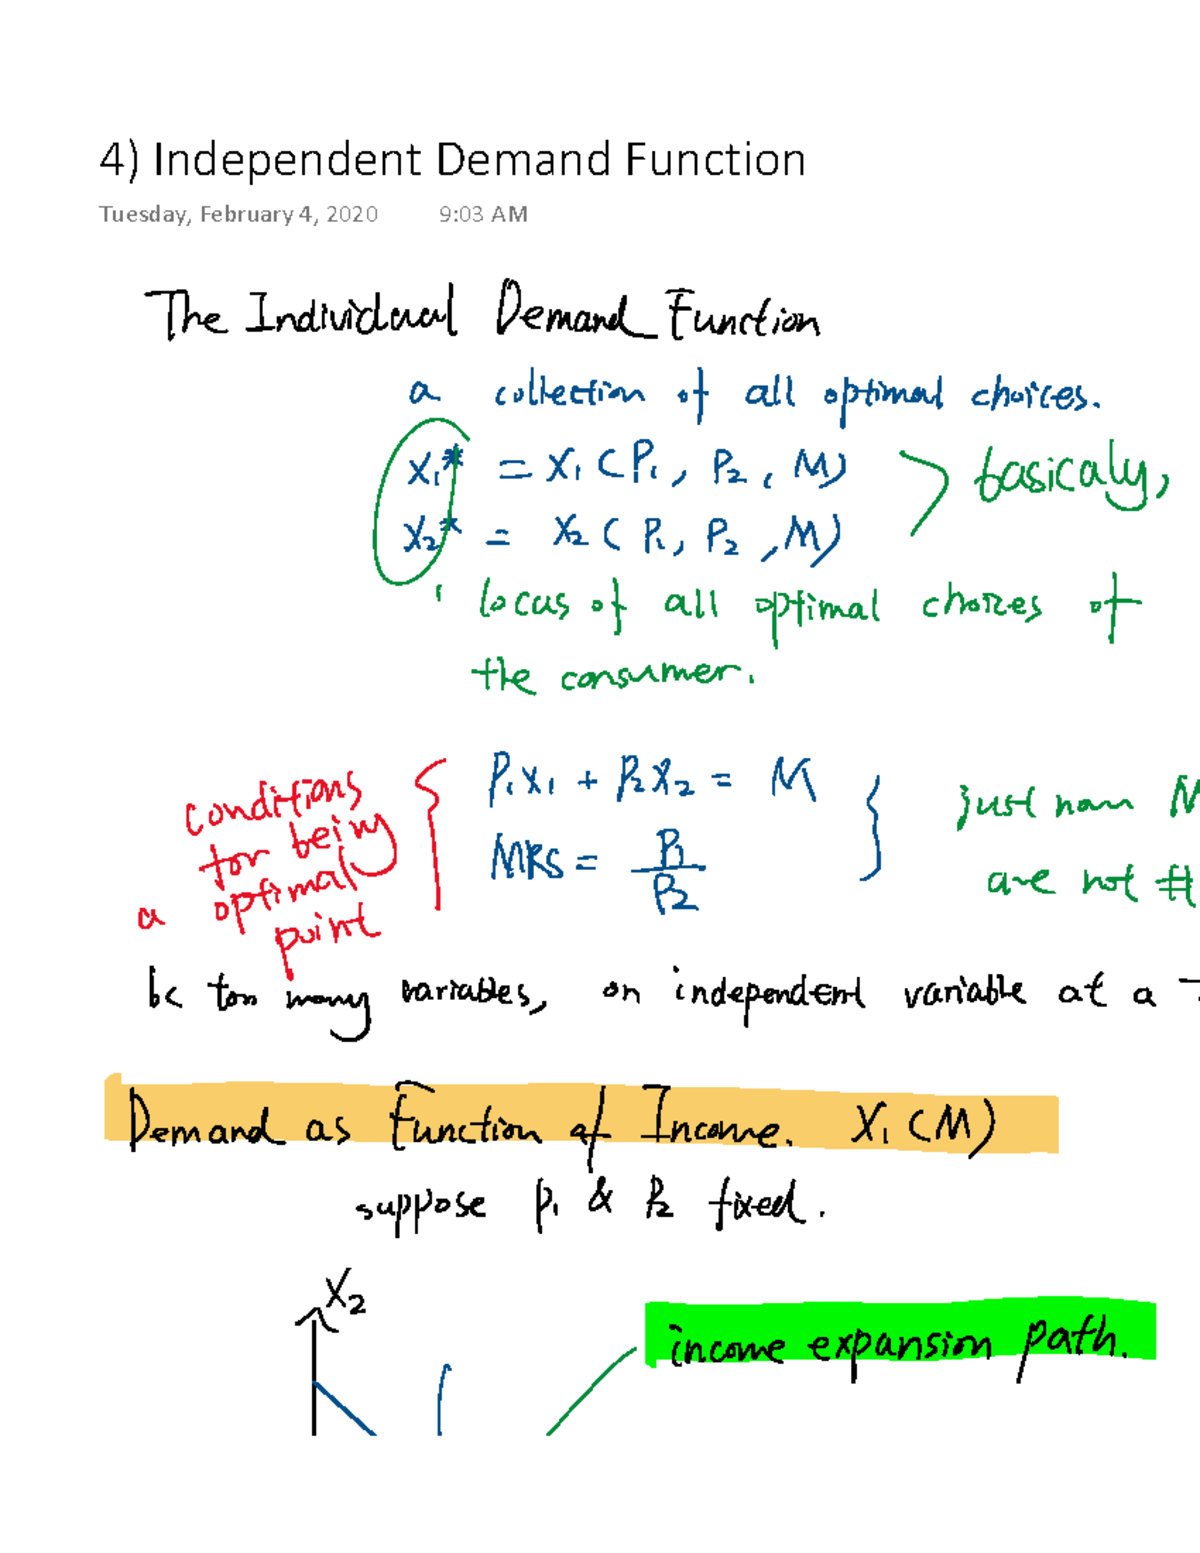 4) Independent Demand Function
Tuesday, February 4, 2020 9:03 AM
The Individual Demand Function
a collection of all optimal choices.
X₁* = X₁ (P₁, P₂, M)
basicaly,
X₂* = X₂ (P₁, P₂, M)
locus of all optimal choices of
the consumer.
conditions for being a optimal point
P₁X₁ + P₂X₂ = M
MRS = P₁/P₂
just nam M
are not #
bc too many variables, on independent variable at a
Demand as Function of Income. X₁ (M)
suppose P₁ & P₂ fixed.
X₂
income expansion path.